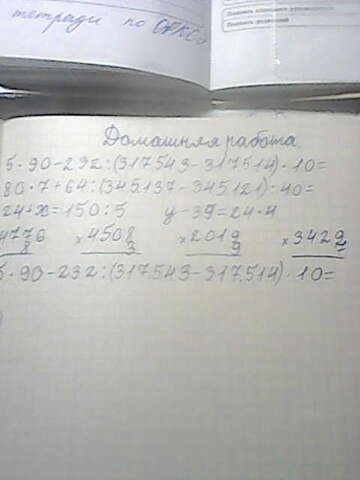 тетради по ОРКСэ
Домашняя работа.
5·90-232:(317543-317514)·10=
80·7+64:(345137-345121):40=
24+x=150:5 y-39=24·4
4776 ×4508 ×2019 ×3429
8 3 9
5·90-232:(317543-317.514)·10=